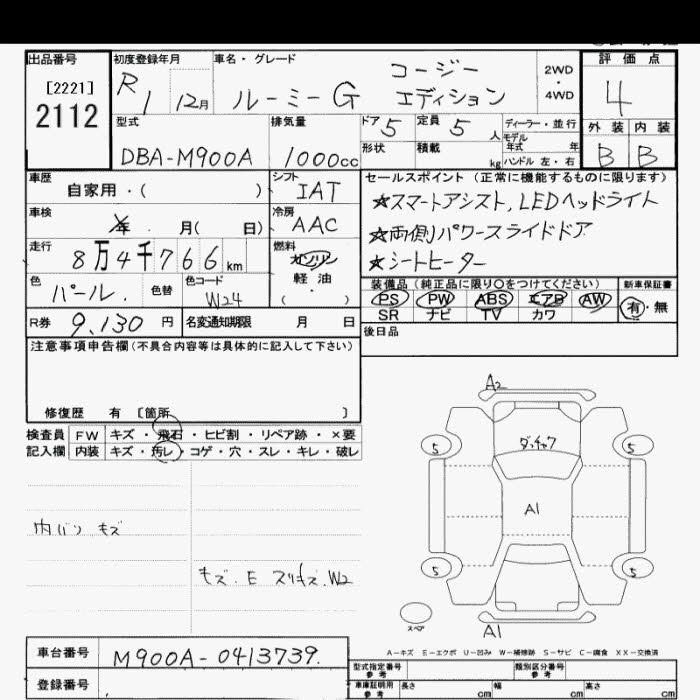 出品番号 初度登録年月 車名・グレード 評価点
[2221]
2112
R1 12月 ルーミーG コージーエディション 2WD・4WD 4
型式 排気量 ドア 5 定員 5人 ディーラー・並行
モデル年式 年
外装 内装
DBA-M900A 1000cc 形状 積載 kg ハンドル 左・右 B B
車歴 シフト セールスポイント (正常に機能するものに限ります)
自家用・( ) IAT ☆スマートアシスト,LEDヘッドライト
車検 年 月( 日) 冷房 AAC ☆両側パワースライドドア
走行 8万4千766km 燃料 ガソリン ☆シートヒーター
軽油・( )
色 パール. 色替 色コード W24
装備品 (純正品に限り○をつけてください) 新車保証書
PS PW ABS エアB AW 有・無
SR ナビ TV カワ
R券 9,130円 名変通知期限 月 日 後日品
注意事項申告欄(不具合内容等は具体的に記入して下さい)
修復歴 有 [箇所 ]
検査員記入欄 FW キズ・飛石・ヒビ割・リペア跡・×要
内装 キズ・汚レ・コゲ・穴・スレ・キレ・破レ
A2
5 ダッチャク 5
A1
内バン キズ
キズ.E スリキズ.W2
5 5
スペア
A1
A-キズ E-エクボ U-凹み W-補修跡 S-サビ C-腐食 XX-交換済
車台番号 M900A-0413739.
登録番号
型式指定番号 参考 類別区分番号 参考
車庫証明用 参考 長さ cm 幅 cm 高さ cm